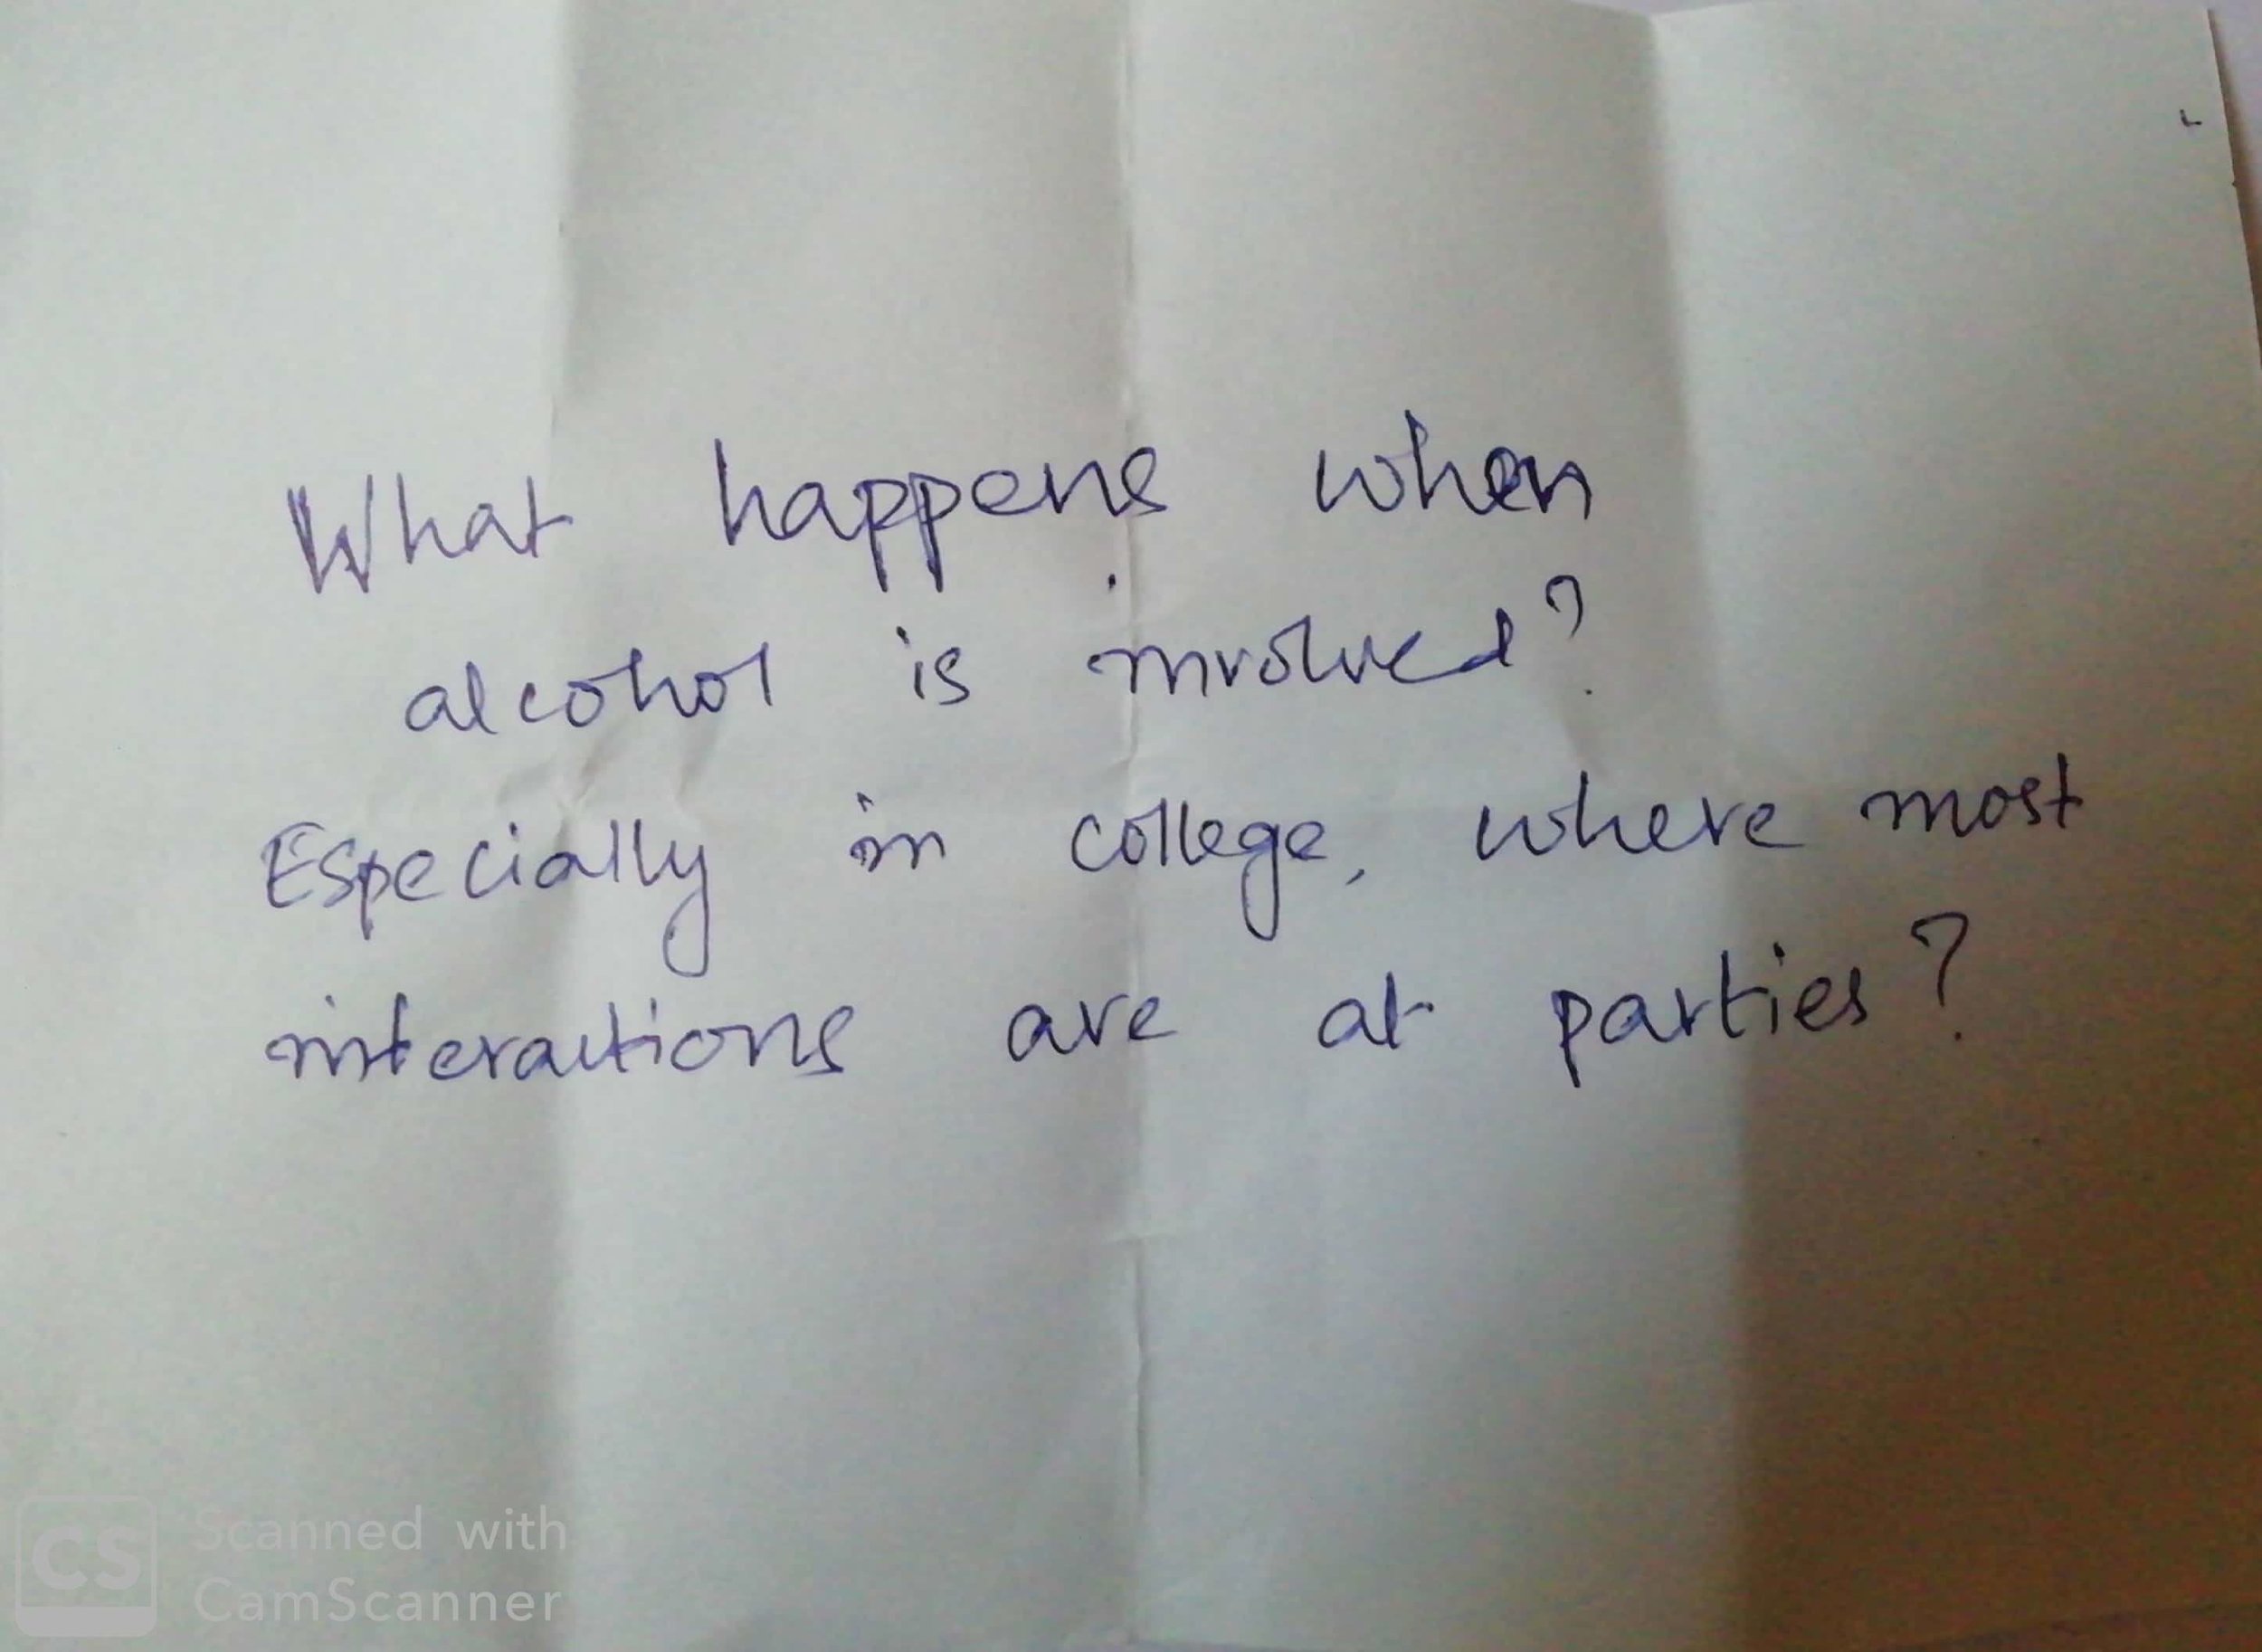 What happens when
alcohol is involved?
Especially in college, where most
interactions are at parties?
CS Scanned with
CamScanner